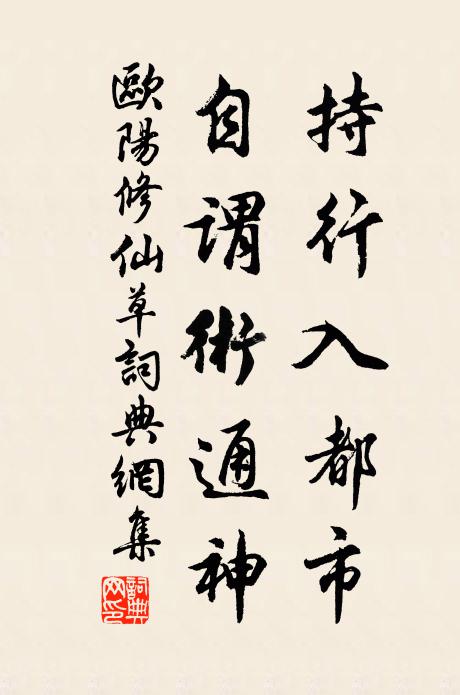 持行入都市
自謂術通神
歐陽修仙草詞典網集
詞典
網印